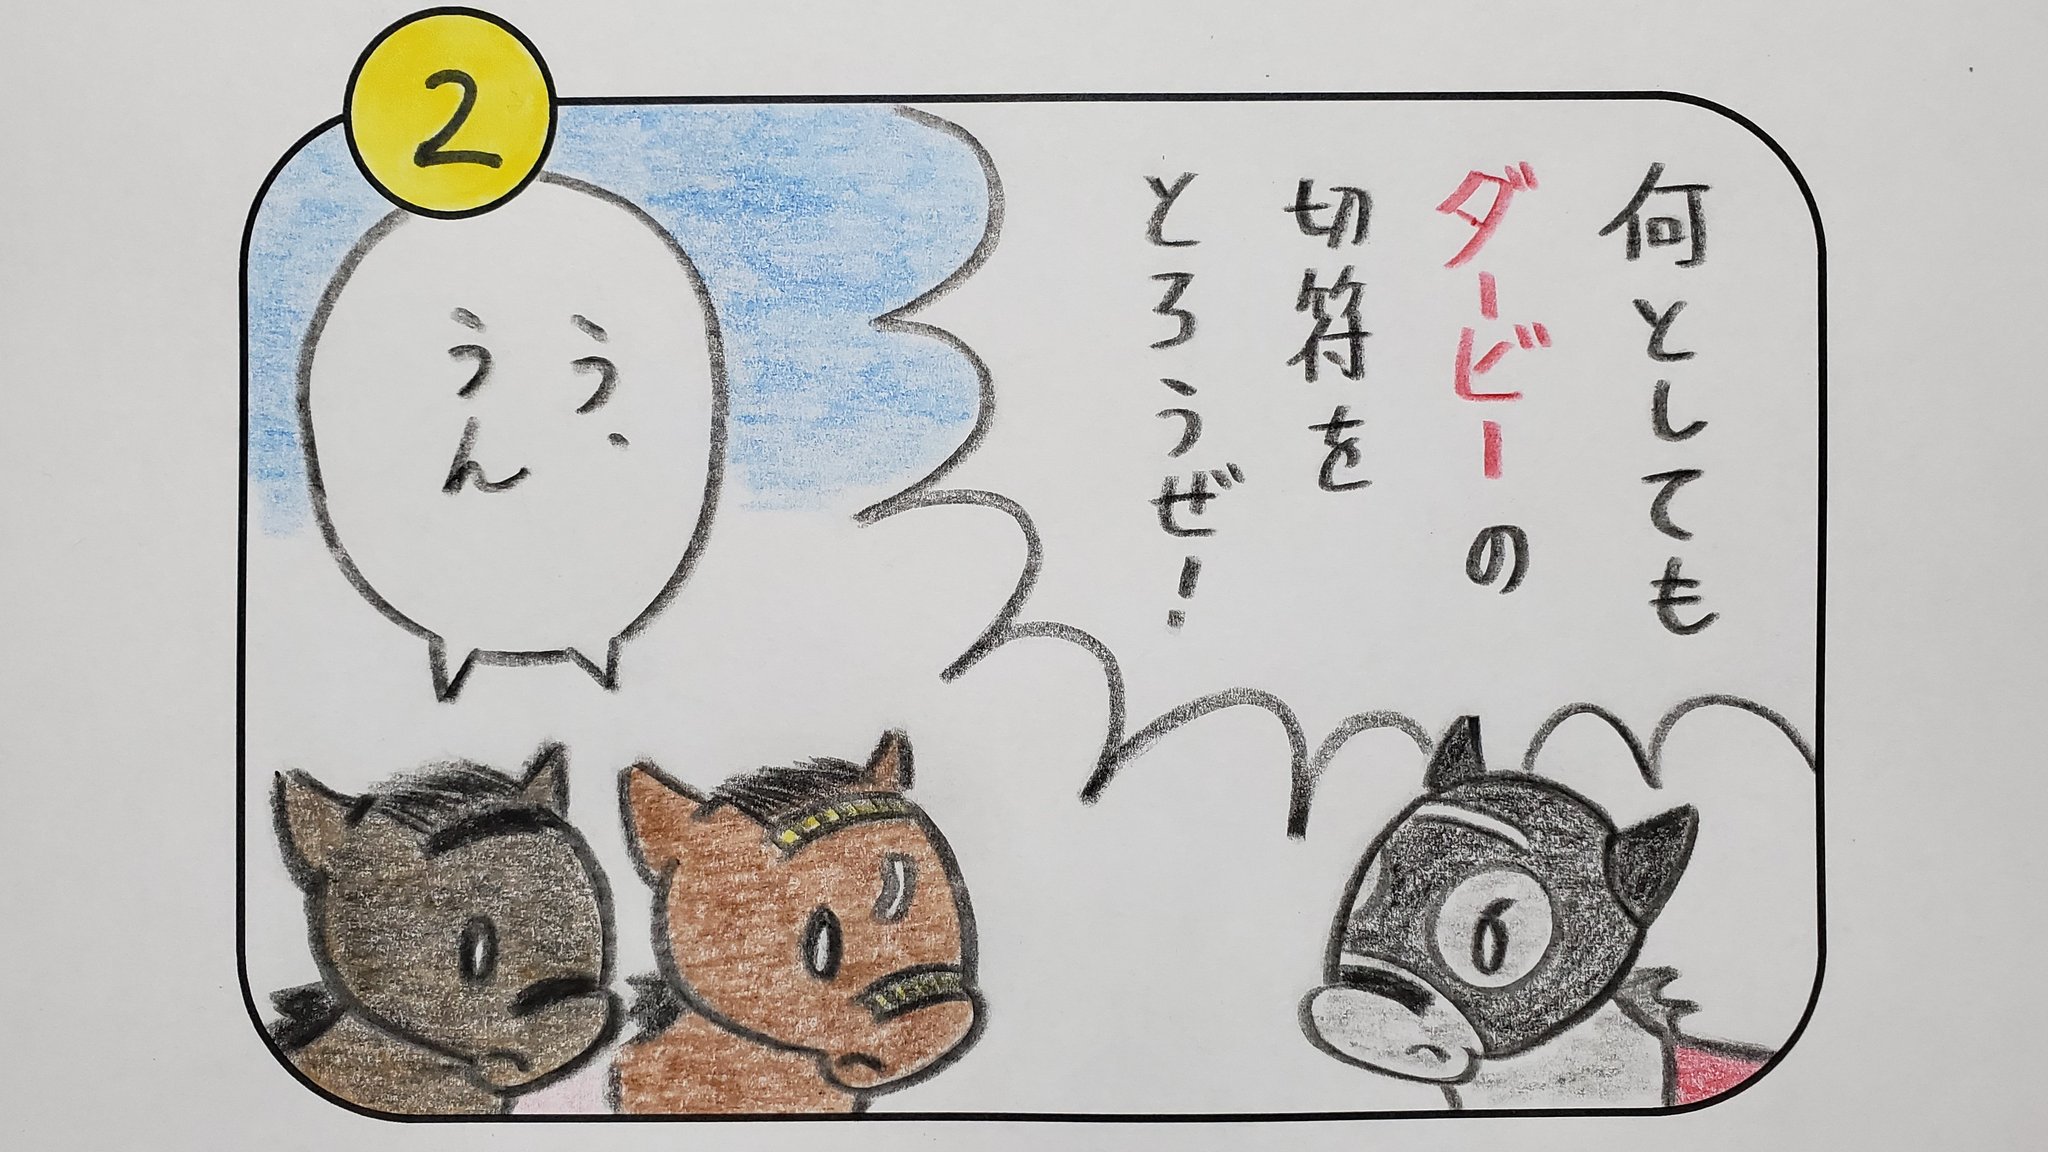 2
何としても
ダービーの
切符を
とろうぜ!
う、
うん